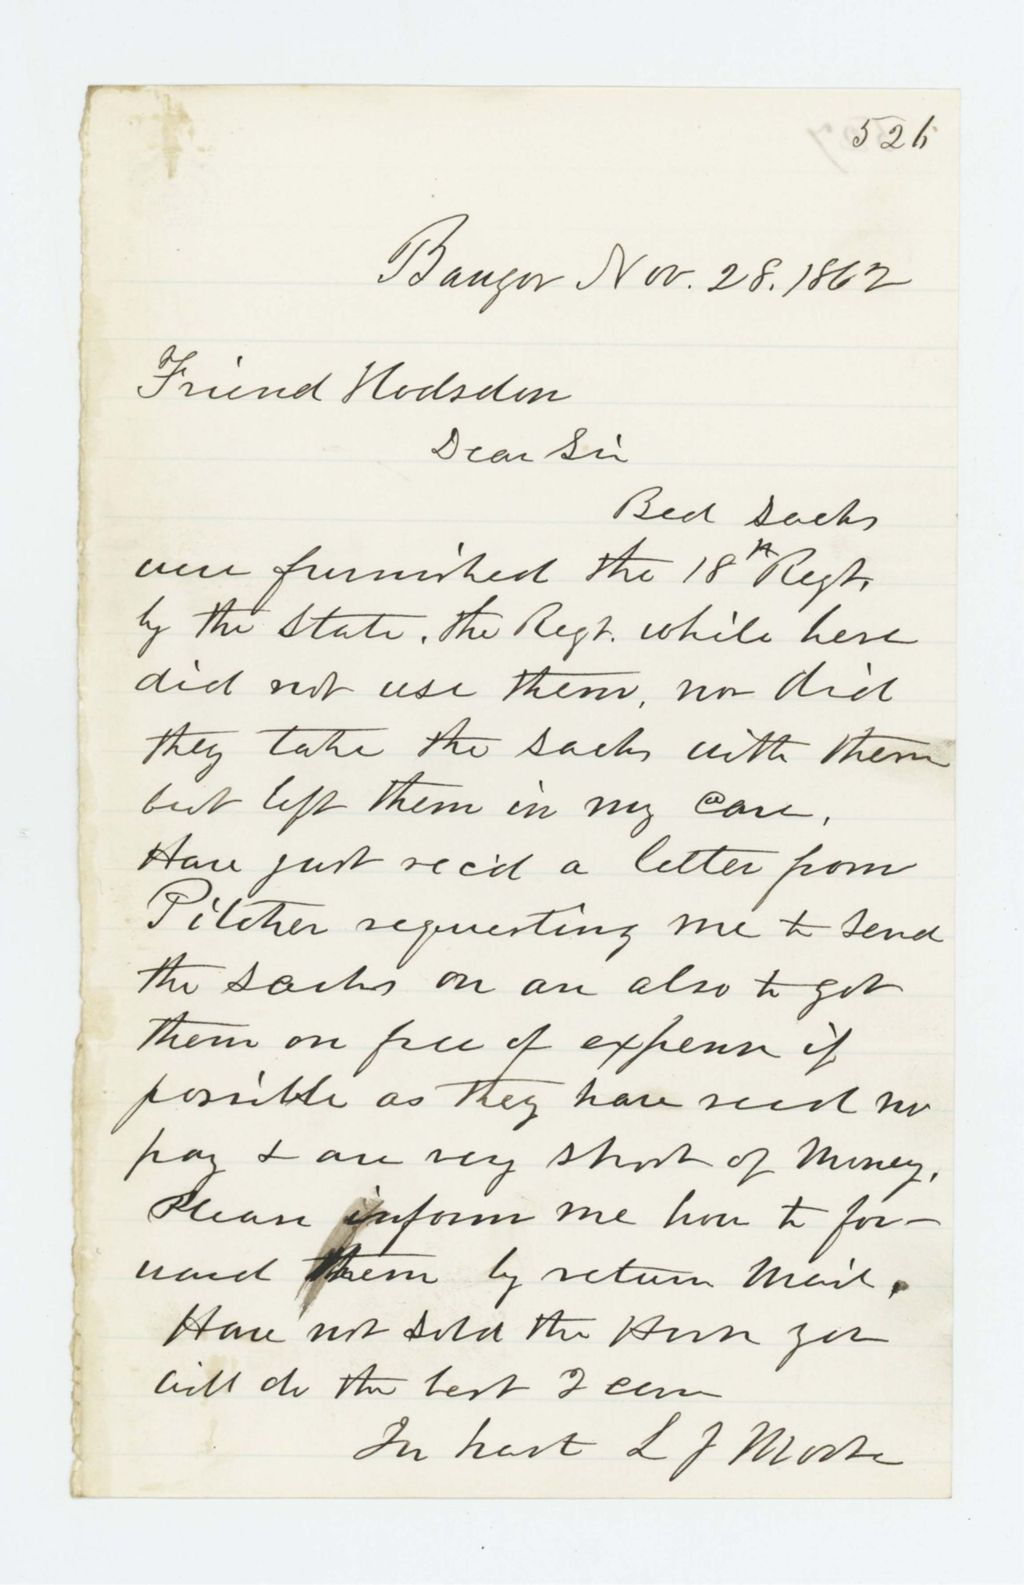 526
Bangor Nov. 28. 1862
Friend Hodsdon
Dear Sir
Bed Sacks
were furnished the 18th Regt.
by the State. the Regt. while here
did not use them, nor did
they take the sacks with them
but left them in my care.
Have just rec'd a letter from
Pilcher requesting me to send
the sacks on an also to get
them on free of expense if
possible as they have recd no
pay & are very short of money.
Please inform me how to for-
ward them by return Mail.
Have not sold the Horse yet
will do the best I can
In hast L J Morse